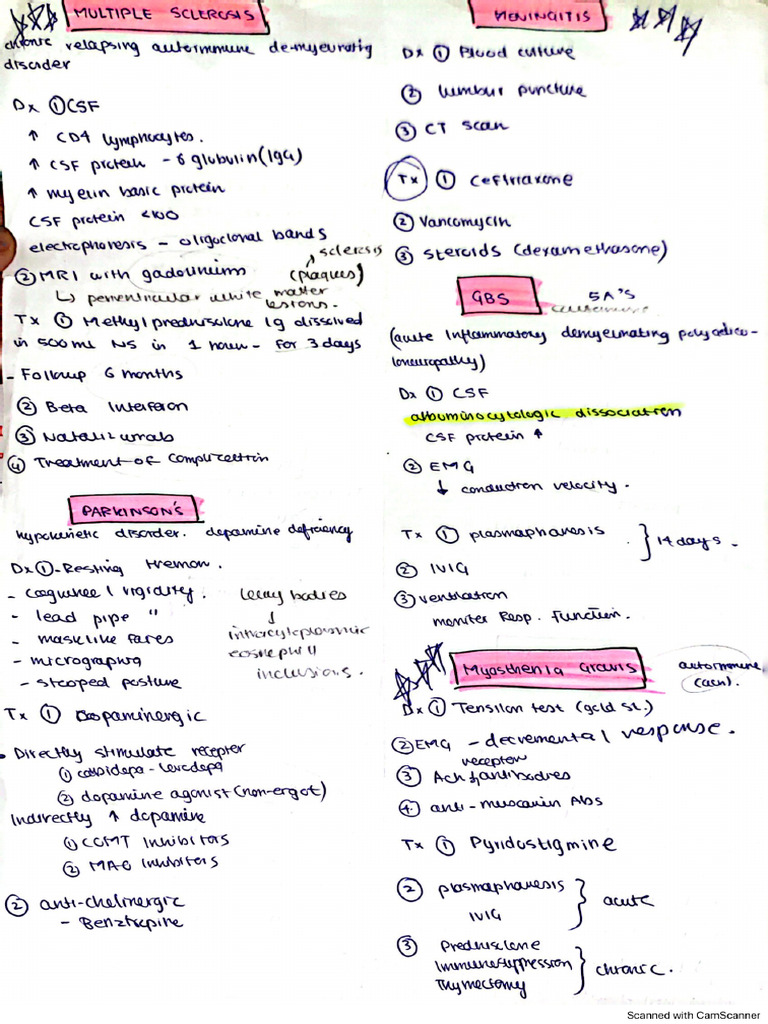 MULTIPLE SCLEROSIS
chronic relapsing autoimmune demyelinating
disorder
Dx ① CSF
↑ CD4 lymphocytes.
↑ CSF protein - γ globulin (IgG)
↑ myelin basic protein
CSF protein <100
electrophoresis - oligoclonal bands
② MRI with gadolinium (plaques)
sclerosis
↳ periventricular white matter
lesions.
Tx ① Methylprednisolone 1g dissolved
in 500ml NS in 1 hour - for 3 days
- Followup 6 months
② Beta Interferon
③ Natalizumab
④ Treatment of Complication
PARKINSON'S
hypokinetic disorder. dopamine deficiency
Dx ① - Resting tremor.
- cogwheel rigidity.
- lead pipe "
- masklike faces
- micrographia
- stooped posture
lewy bodies
↓
intracytoplasmic
eosinophill
inclusions.
Tx ① Dopaminergic
• Directly stimulate receptor
① carbidopa - levodopa
② dopamine agonist (non-ergot)
Indirectly ↑ dopamine
① COMT Inhibitors
② MAO Inhibitors
② anti-cholinergic
- Benztropine
MENINGITIS
Dx ① Blood culture
② lumbur puncture
③ CT scan
Tx ① Ceftriaxone
② Vancomycin
③ Steroids (dexamethasone)
GBS 5A's
autoimmune
(acute Inflammatory demyelinating polyradicu-
loneuropathy)
Dx ① CSF
albuminocytologic dissociation
CSF protein ↑
② EMG
↓ conduction velocity.
Tx ① plasmapharesis } 14 days -
② IVIG
③ ventilation
moniter Resp. function.
Myasthenia Gravis autoimmune
(ach).
Dx ① Tensilon test (gold st.)
② EMG - decremental response.
receptor
③ Ach antibodies
④ anti-muscarin Abs
Tx ① Pyridostigmine
② plasmapharesis
IVIG } acute
③ Prednisolone
Immunosuppression } chronic.
Thymectomy
Scanned with CamScanner